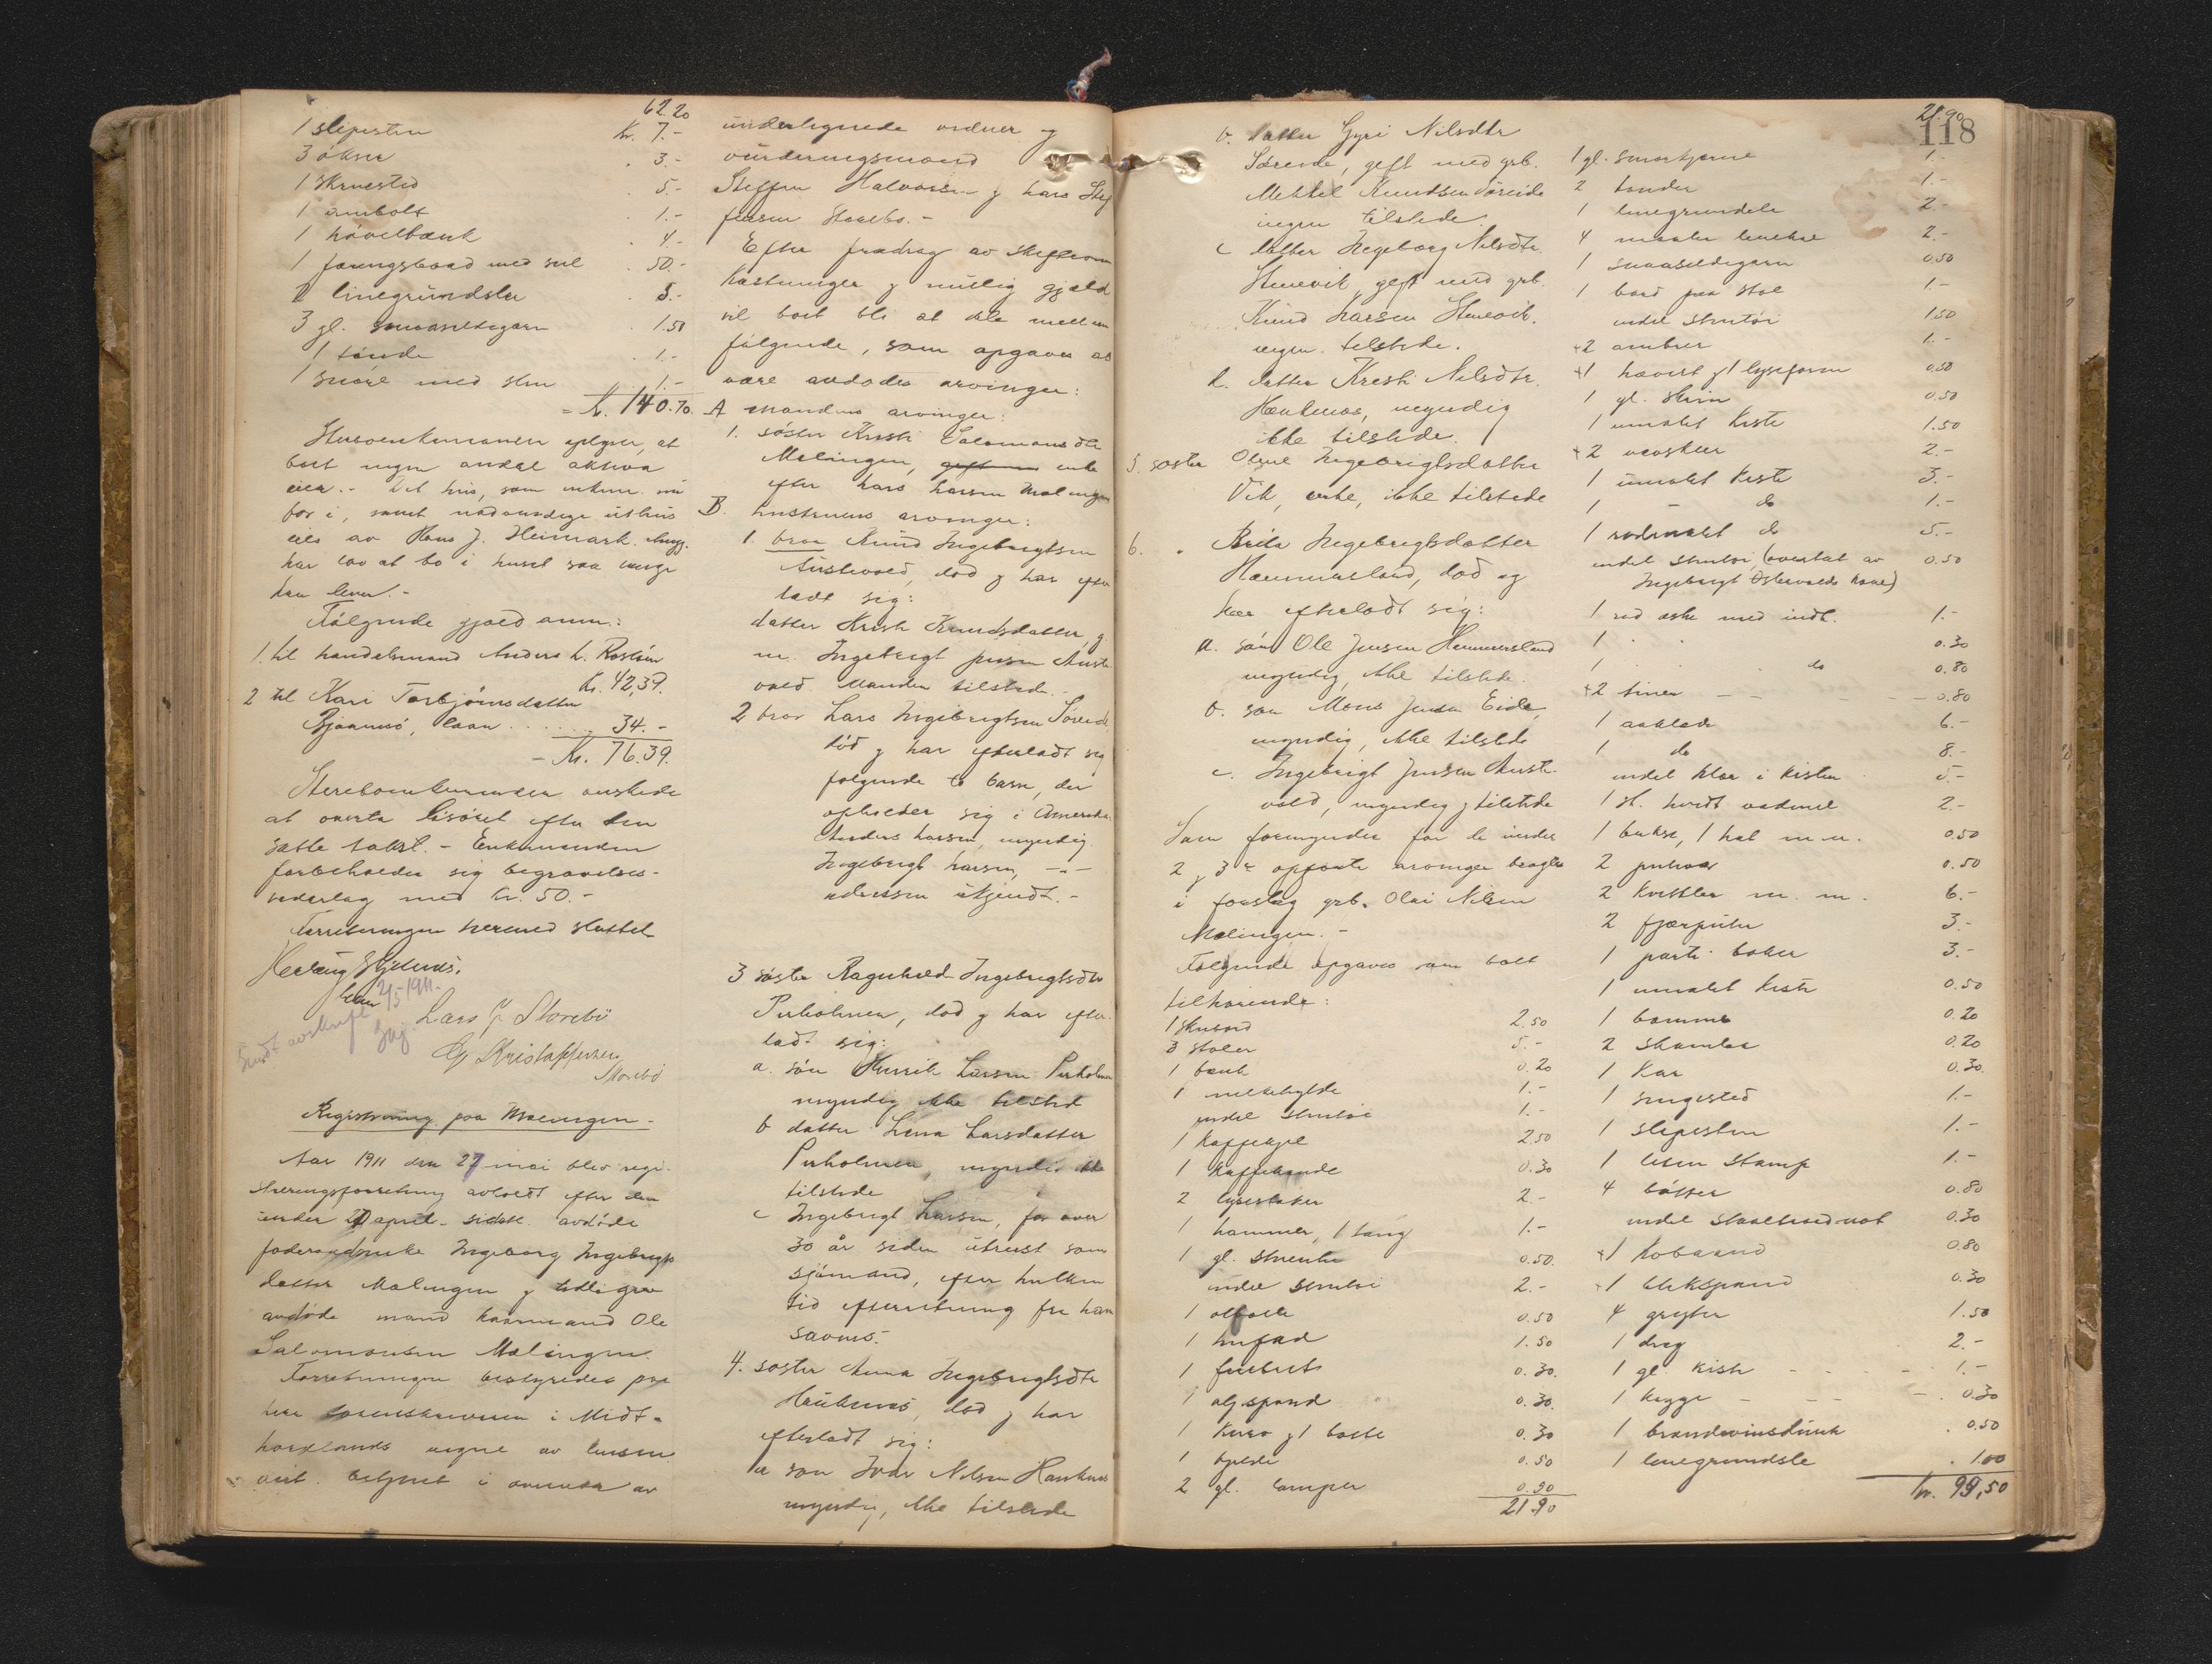 62.20
1 slipesten kr. 7.-
3 økser 3.-
1 skruested 5.-
1 ambolt 1.-
1 høvelbænk 4.-
1 færingsbaad med seil 50.-
2 linegrundsler 5.-
3 gl. smaasildegarn 1.50
1 tønde 1.-
1 snøre med sten 1.-
= kr. 140.70.
opgiver, at
boet ingen andel aktiva
eier.- Det hus, som enkem. nu
bor i, samt nødvendige uthus
eies av Hans J. Heimark.
har lov at bo i huset saa længe
han lever.-
Følgende gjæld anm.:
1. til handelsmand Anders L. Rostøen
kr. 42,39.
2 til Kari Torbjørnsdatter
Bjaanesø, laan .... 34.-
- kr. 76.39.
ønskede
at overta løsøret efter den
satte takst.- Enkemanden
forbeholder sig begravelses-
vederlag med kr. 50.-
Forretningen hermed sluttet
2/5 1911.
Sendt avskrift
Lars J. Storebø
Kristoffersen
Storebø
Registrering paa Møkingen.-
Aar 1911 den 27 mai blev regi-
streringsforretning avholdt efter den
under 20 april sidstl. avdøde
føderaadsenke Ingeborg Ingebrigts
datter Malingen og tidligere
avdøde mand kaarmand Ole
Salomonsen Malingen.
Forretningen bestyredes paa
herr sorenskriveren i Midt-
hordlands vegne av lensm.
betjent i overvær av
undertegnede vidner og
vurderingsmænd
Steffen Halvorsen og Lars Stef
fensen Storebø.-
Efter fradrag av skifteom
kostninger og mulig gjæld
vil boet bli at dele mellem
følgende, som opgaves at
være avdødes arvinger:
A mandens arvinger:
1. søster Kristi Salomonsdtr
Malingen, gift enke
efter Lars Larsen Malingen
B. hustruens arvinger:
1. bror Knud Ingebrigtsen
Austevold, død og har efter
ladt sig:
datter Kristi Knudsdatter, g.
m. Ingebrigt Jensen Auste
vold. Manden tilstede.-
2 bror Lars Ingebrigtsen Søreide
død og har efterladt sig
følgende to barn, der
opholder sig i Amerika:
Anders Larsen, myndig.
Ingebrigt Larsen, -"-
adressen ukjendt.-
3 søster Ragnhild Ingebrigtsdtr
Pirholmen, død og har efter
ladt sig:
a. søn Henrik Larsen Pirholmen
myndig ikke tilsted
b datter Lena Larsdatter
Pirholmen, myndig ikke
tilstede
c Ingebrigt Larsen, for over
30 år siden utreist som
sjømand, efter hvilken
tid efterretning fra ham
savnes.-
4. søster Anna Ingebrigtsdtr
Haukenes, død og har
efterladt sig:
a søn Ivar Nilsen Haukenes
myndig, ikke tilstede
118
b. datter Gyri Nilsdtr
Søreide, gift med grb.
Mikkel Knudsen Søreide
ingen tilstede.
c datter Ingeborg Nilsdtr.
Stenevik, gift med grb.
Knud Larsen Stenevik.
ingen tilstede.
d. datter Kristi Nilsdtr.
Haukenes, myndig
ikke tilstede.
5. søster Oline Ingebrigtsdatter
Vik, enke, ikke tilstede
6. " Brita Ingebrigtsdatter
Hammersland, død og
har efterladt sig:
a. søn Ole Jensen Hammersland
myndig, ikke tilstede.
b. søn Mons Jensen Eide,
myndig, ikke tilstede
c. Ingebrigt Jensen Auste-
vold, myndig og tilstede
Som formynder for de under
2 og 3 c opførte arvinger bragtes
i forslag grb. Olai Nilsen
Malingen.-
Følgende opgaves som boet
tilhørende:
1 skrubord 2.50
3 stoler 5.-
1 bænk 0.20
1 melkehylde 1.-
endel skrutøi 1.-
1 kaffekjel 2.50
1 kaffekande 0.30
2 lysestaker 2.-
1 hammer, 1 tang 1.-
1 gl. 0.50.
endel skrutøi 2.-
1 0.50
1 1.50
1 0.30.
1 0.30.
1 0.30
1 0.50
2 gl. lamper 0.30
21.90
21.90
1 gl. smørkjerne 1.-
2 tønder 1.-
1 linegrundsle 2.-
4 2.-
1 smaasildegarn 0.50
1 bord paa stol 1.-
endel skrutøi 1.50
+2 ambrer 1.-
+1 og 1 lyseform 0.50
1 gl. skrin 0.50
1 umalet kiste 1.50
+2 2.-
1 umalet kiste 3.-
1 - do 1.-
1 rødmalet do 5.-
endel skrutøi, (overtat av 0.50
Ingebrigt Østervolds kone)
1 rød æske med indt. 1.-
1 " " 0.30
1 " " do 0.80
+2 tiner - - - 0.80
1 aaklæde 6.-
1 do 8.-
endel klær i kisten 5.-
1 st. hvidt vadmel 2.-
1 bukse, 1 hat m.m. 0.50
2 putevar 0.50
2 m. m. 6.-
2 fjærputer 3.-
1 parti bøker 3.-
1 umalet kiste 0.50
1 bomme 0.20
2 skamler 0.20
1 kar 0.30.
1 sengested 1.-
1 slipesten 1.-
1 liten stamp 1.-
4 bøtter 0.80
endel 0.30
+1 0.80
+1 blikspand 0.30
4 gryter 1.50
1 dreg 2.-
1 gl. kiste - - - 1.-
1 kagge - - - 0.30
1 brændevinsdunk 0.50
1 linegrundsle 1.00
kr. 99,50